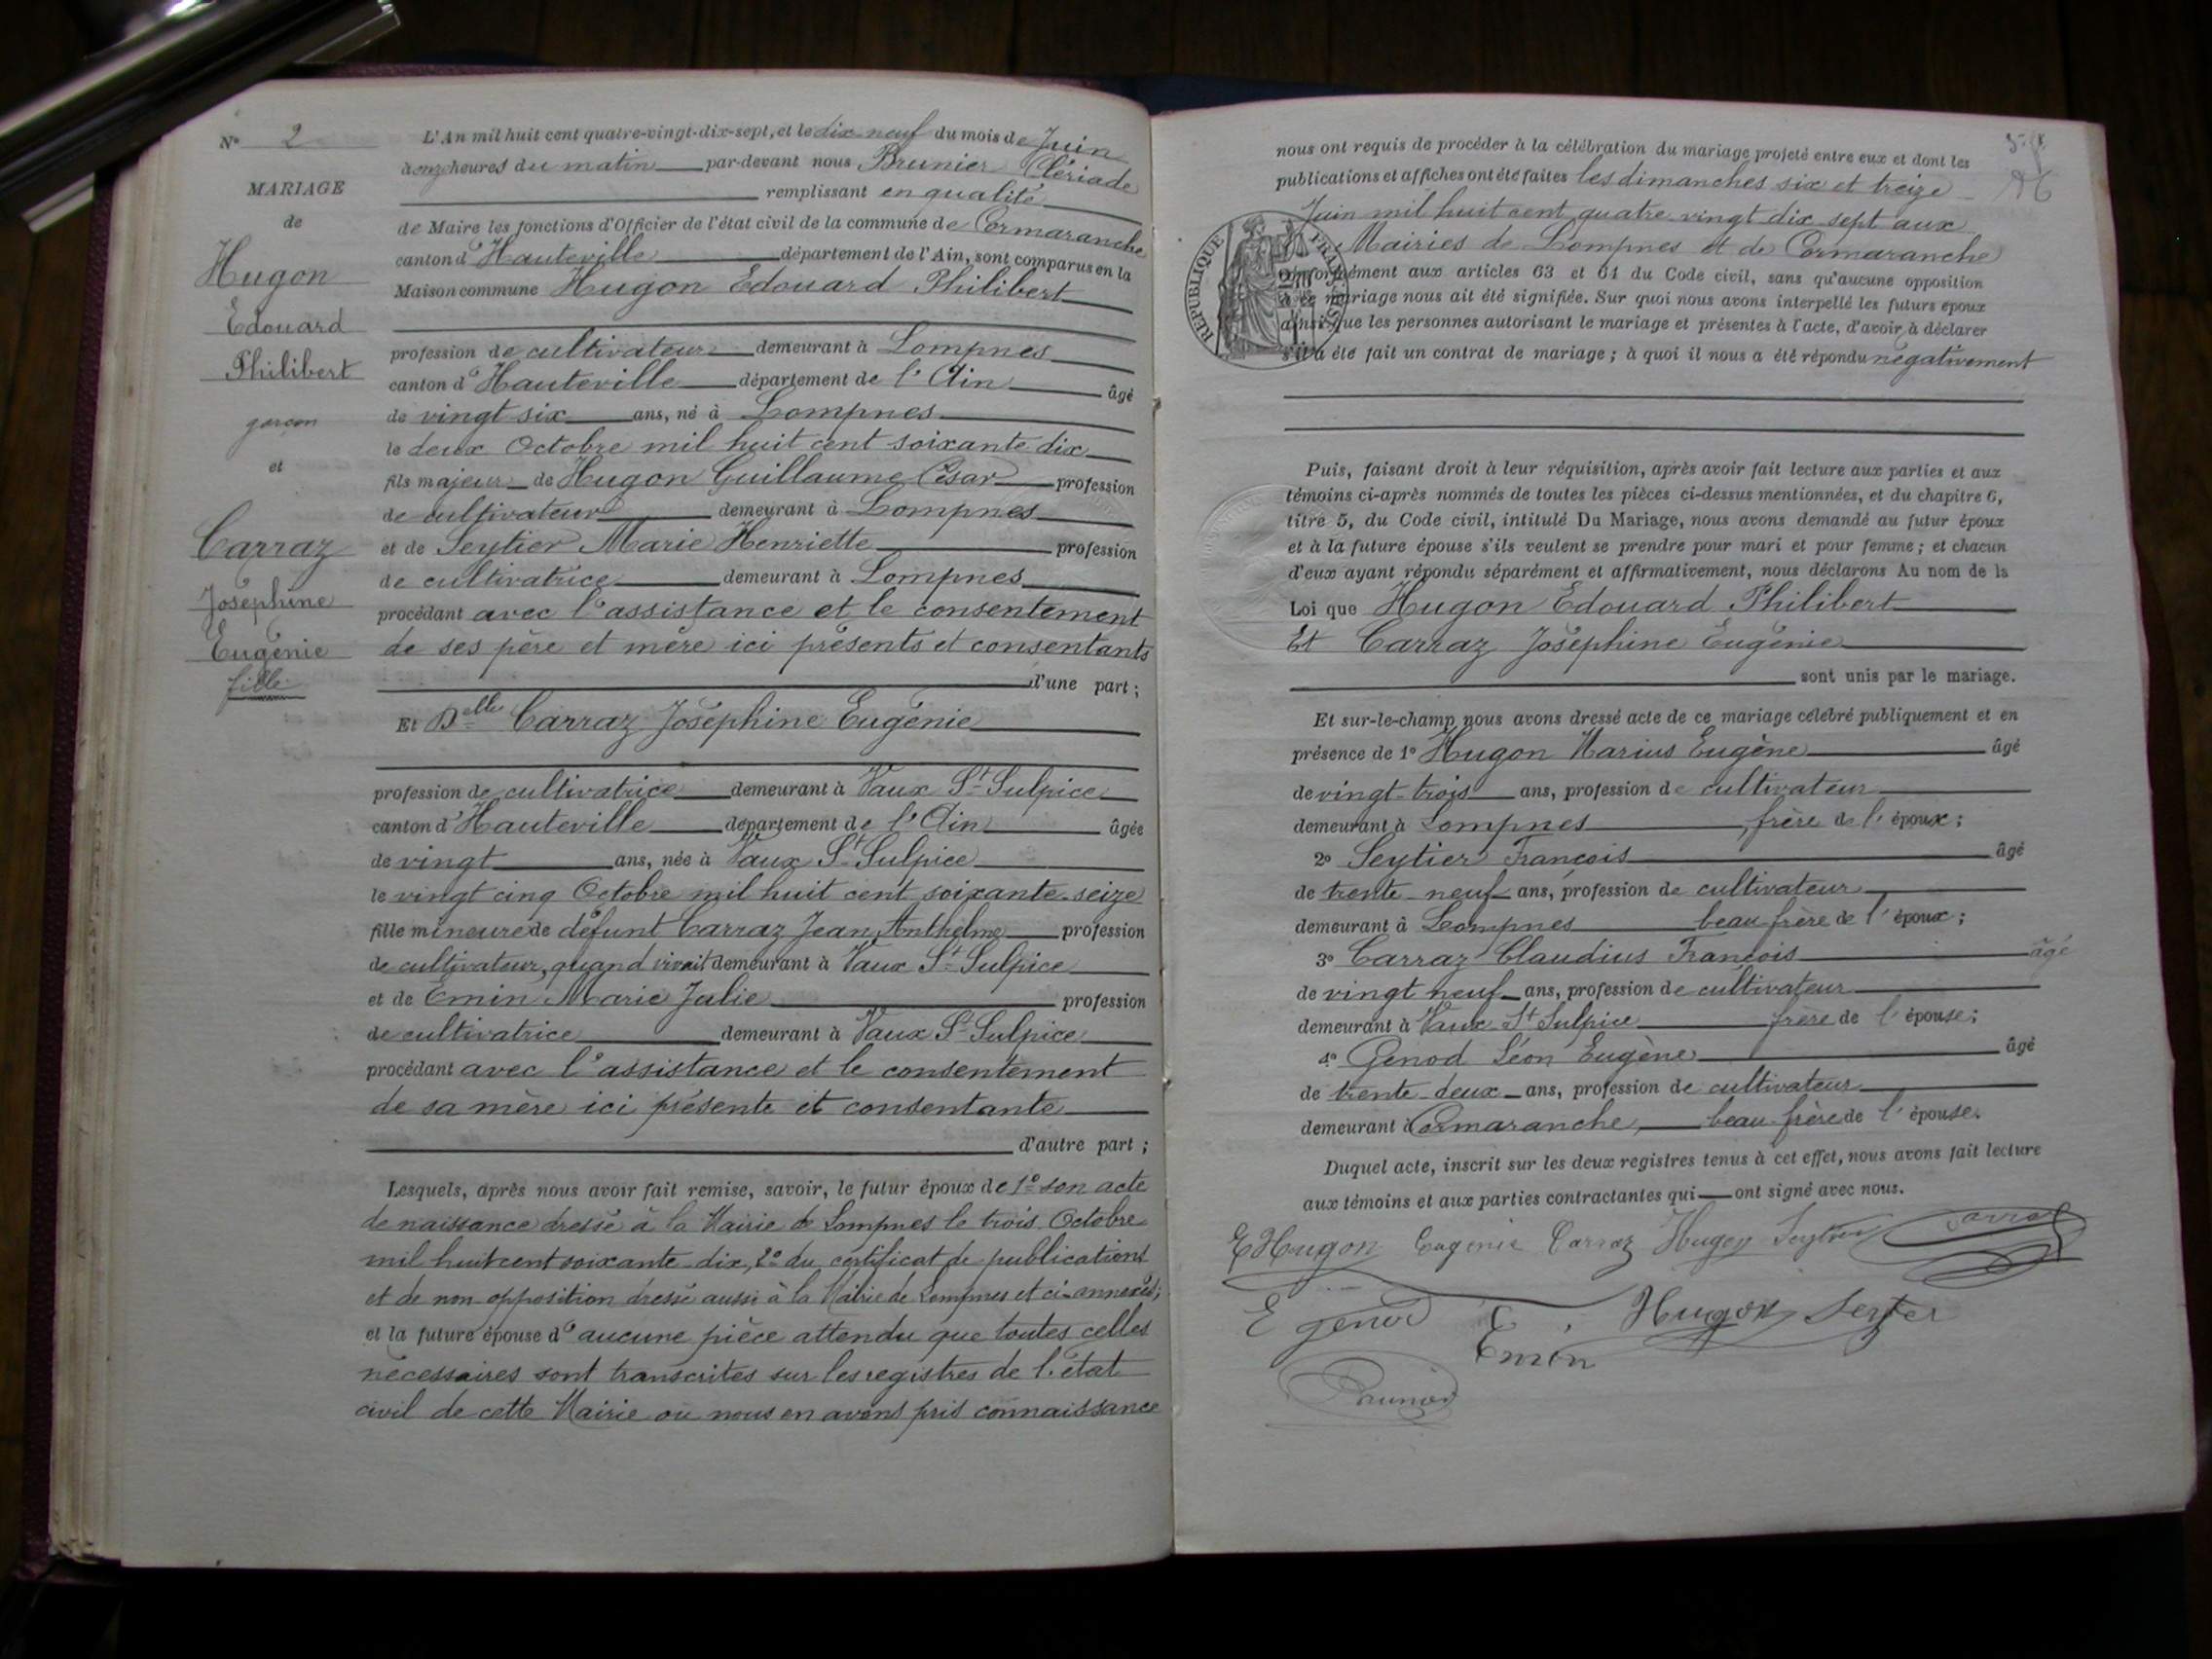 N° 2
MARIAGE
de
Hugon
Edouard
Philibert
garçon
et
Carraz
Joséphine
Eugénie
fille
L'An mil huit cent quatre-vingt-dix-sept, et le dix neuf du mois de Juin
à onze heures du matin par-devant nous Brunier Clériade
remplissant en qualité
de Maire les fonctions d'Officier de l'état civil de la commune de Cormaranche
canton d'Hauteville département de l'Ain, sont comparus en la
Maison commune Hugon Edouard Philibert
profession de cultivateur demeurant à Lompnes
canton d'Hauteville département de l'Ain âgé
de vingt six ans, né à Lompnes
le deux Octobre mil huit cent soixante dix
fils majeur de Hugon Guillaume César profession
de cultivateur demeurant à Lompnes
et de Seytier Marie Henriette profession
de cultivatrice demeurant à Lompnes
procédant avec l'assistance et le consentement
de ses père et mère ici présents et consentants
d'une part;
Et Delle Carraz Joséphine Eugénie
profession de cultivatrice demeurant à Vaux St Sulpice
canton d'Hauteville département de l'Ain âgée
de vingt ans, née à Vaux St Sulpice
le vingt cinq Octobre mil huit cent soixante-seize
fille mineure de défunt Carraz Jean Anthelme profession
de cultivateur, quand vivait demeurant à Vaux St Sulpice
et de Emin Marie Julie profession
de cultivatrice demeurant à Vaux St Sulpice
procédant avec l'assistance et le consentement
de sa mère ici présente et consentante
d'autre part;
Lesquels, après nous avoir fait remise, savoir, le futur époux de 1° son acte
de naissance dressé à la Mairie de Lompnes le trois Octobre
mil huit cent soixante dix, 2° du certificat de publications
et de non opposition dressé aussi à la Mairie de Lompnes et ci-annexés;
et la future épouse d'aucune pièce attendu que toutes celles
nécessaires sont transcrites sur les registres de l'état
civil de cette Mairie où nous en avons pris connaissance
nous ont requis de procéder à la célébration du mariage projeté entre eux et dont les
publications et affiches ont été faites les dimanches six et treize
Juin mil huit cent quatre vingt dix sept aux
Mairies de Lompnes et de Cormaranche
conformément aux articles 63 et 64 du Code civil, sans qu'aucune opposition
à ce mariage nous ait été signifiée. Sur quoi nous avons interpellé les futurs époux
ainsi que les personnes autorisant le mariage et présentes à l'acte, d'avoir à déclarer
s'il a été fait un contrat de mariage; à quoi il nous a été répondu négativement
RÉPUBLIQUE FRANÇAISE
Puis, faisant droit à leur réquisition, après avoir fait lecture aux parties et aux
témoins ci-après nommés de toutes les pièces ci-dessus mentionnées, et du chapitre 6,
titre 5, du Code civil, intitulé Du Mariage, nous avons demandé au futur époux
et à la future épouse s'ils veulent se prendre pour mari et pour femme; et chacun
d'eux ayant répondu séparément et affirmativement, nous déclarons Au nom de la
Loi que Hugon Edouard Philibert
Et Carraz Joséphine Eugénie
sont unis par le mariage.
Et sur-le-champ nous avons dressé acte de ce mariage célébré publiquement et en
présence de 1° Hugon Marius Eugène âgé
de vingt-trois ans, profession de cultivateur
demeurant à Lompnes frère de l'époux;
2° Seytier François âgé
de trente neuf ans, profession de cultivateur
demeurant à Lompnes beau frère de l'époux;
3° Carraz Claudius François âgé
de vingt neuf ans, profession de cultivateur
demeurant à Vaux St Sulpice frère de l'épouse;
4° Genod Léon Eugène âgé
de trente-deux ans, profession de cultivateur
demeurant à Cormaranche, beau-frère de l'épouse.
Duquel acte, inscrit sur les deux registres tenus à cet effet, nous avons fait lecture
aux témoins et aux parties contractantes qui ont signé avec nous.
E Hugon Eugénie Carraz Hugon Seytier Carraz
E genod E. Emin Hugon
Brunier